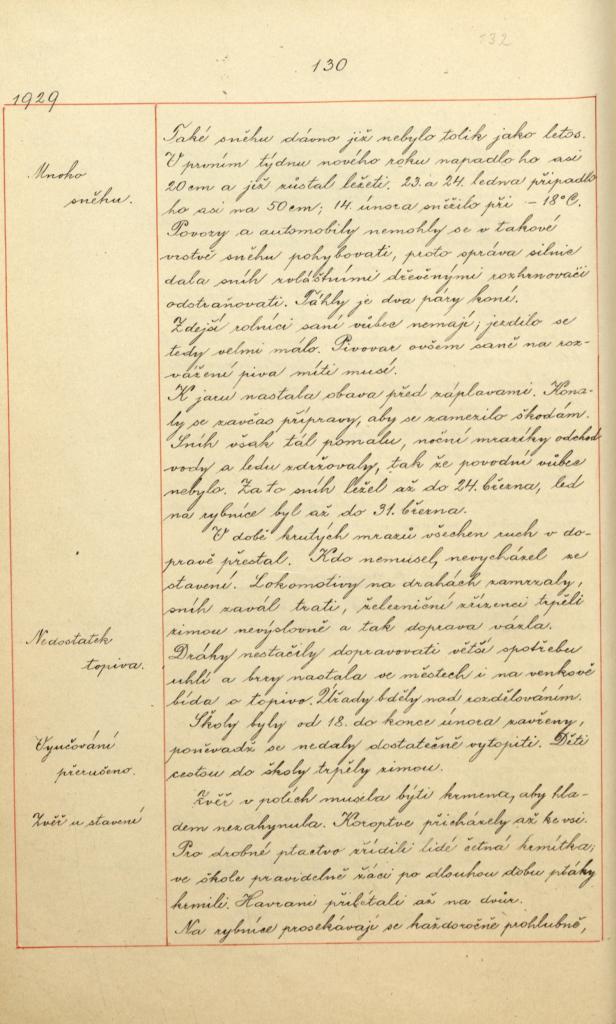 132
130
1929
Mnoho
sněhu.
Také sněhu dávno již nebylo tolik jako letos.
V prvním týdnu nového roku napadlo ho asi
20 cm a již zůstal ležeti. 23. a 24. ledna připadlo
ho asi na 50 cm; 14. února sněžilo při – 18°C.
Povozy a automobily nemohly se v takové
vrstvě sněhu pohybovati, proto správa silnic
dala sníh zvláštními dřevěnými rozhrnovači
odstraňovati. Táhly je dva páry koní.
Zdejší rolníci saní vůbec nemají; jezdilo se
tedy velmi málo. Pivovar ovšem saně na roz-
vážení piva míti musí.
K jaru nastala obava před záplavami. Kona-
ly se zavčas přípravy, aby se zamezilo škodám.
Sníh však tál pomalu, noční mrazíky odchod
vody a ledu zdržovaly, tak že povodní vůbec
nebylo. Za to sníh ležel až do 24. března, led
na rybníce byl až do 31. března.
V době krutých mrazů všechen ruch v do-
pravě přestal. Kdo nemusel, nevycházel ze
stavení. Lokomotivy na drahách zamrzaly,
sníh zavál trati, železniční zřízenci trpěli
zimou nevýslovně a tak doprava vázla.
Nedostatek
topiva.
Dráhy nestačily dopravovati větší spotřebu
uhlí a brzy nastala ve městech i na venkově
bída o topivo. Úřady bděly nad rozdělováním.
Školy byly od 18. do konce února zavřeny,
Vyučování
přerušeno.
poněvadž se nedaly dostatečně vytopiti. Děti
cestou do školy trpěly zimou.
Zvěř u stavení
Zvěř v polích musela býti krmena, aby hla-
dem nezahynula. Koroptve přicházely až ke vsi.
Pro drobné ptactvo zřídili lidé četná krmítka;
ve škole pravidelně žáci po dlouhou dobu ptáky
krmili. Havrani přilétali až na dvůr.
Na rybníce prosekávají se každoročně prohlubně,